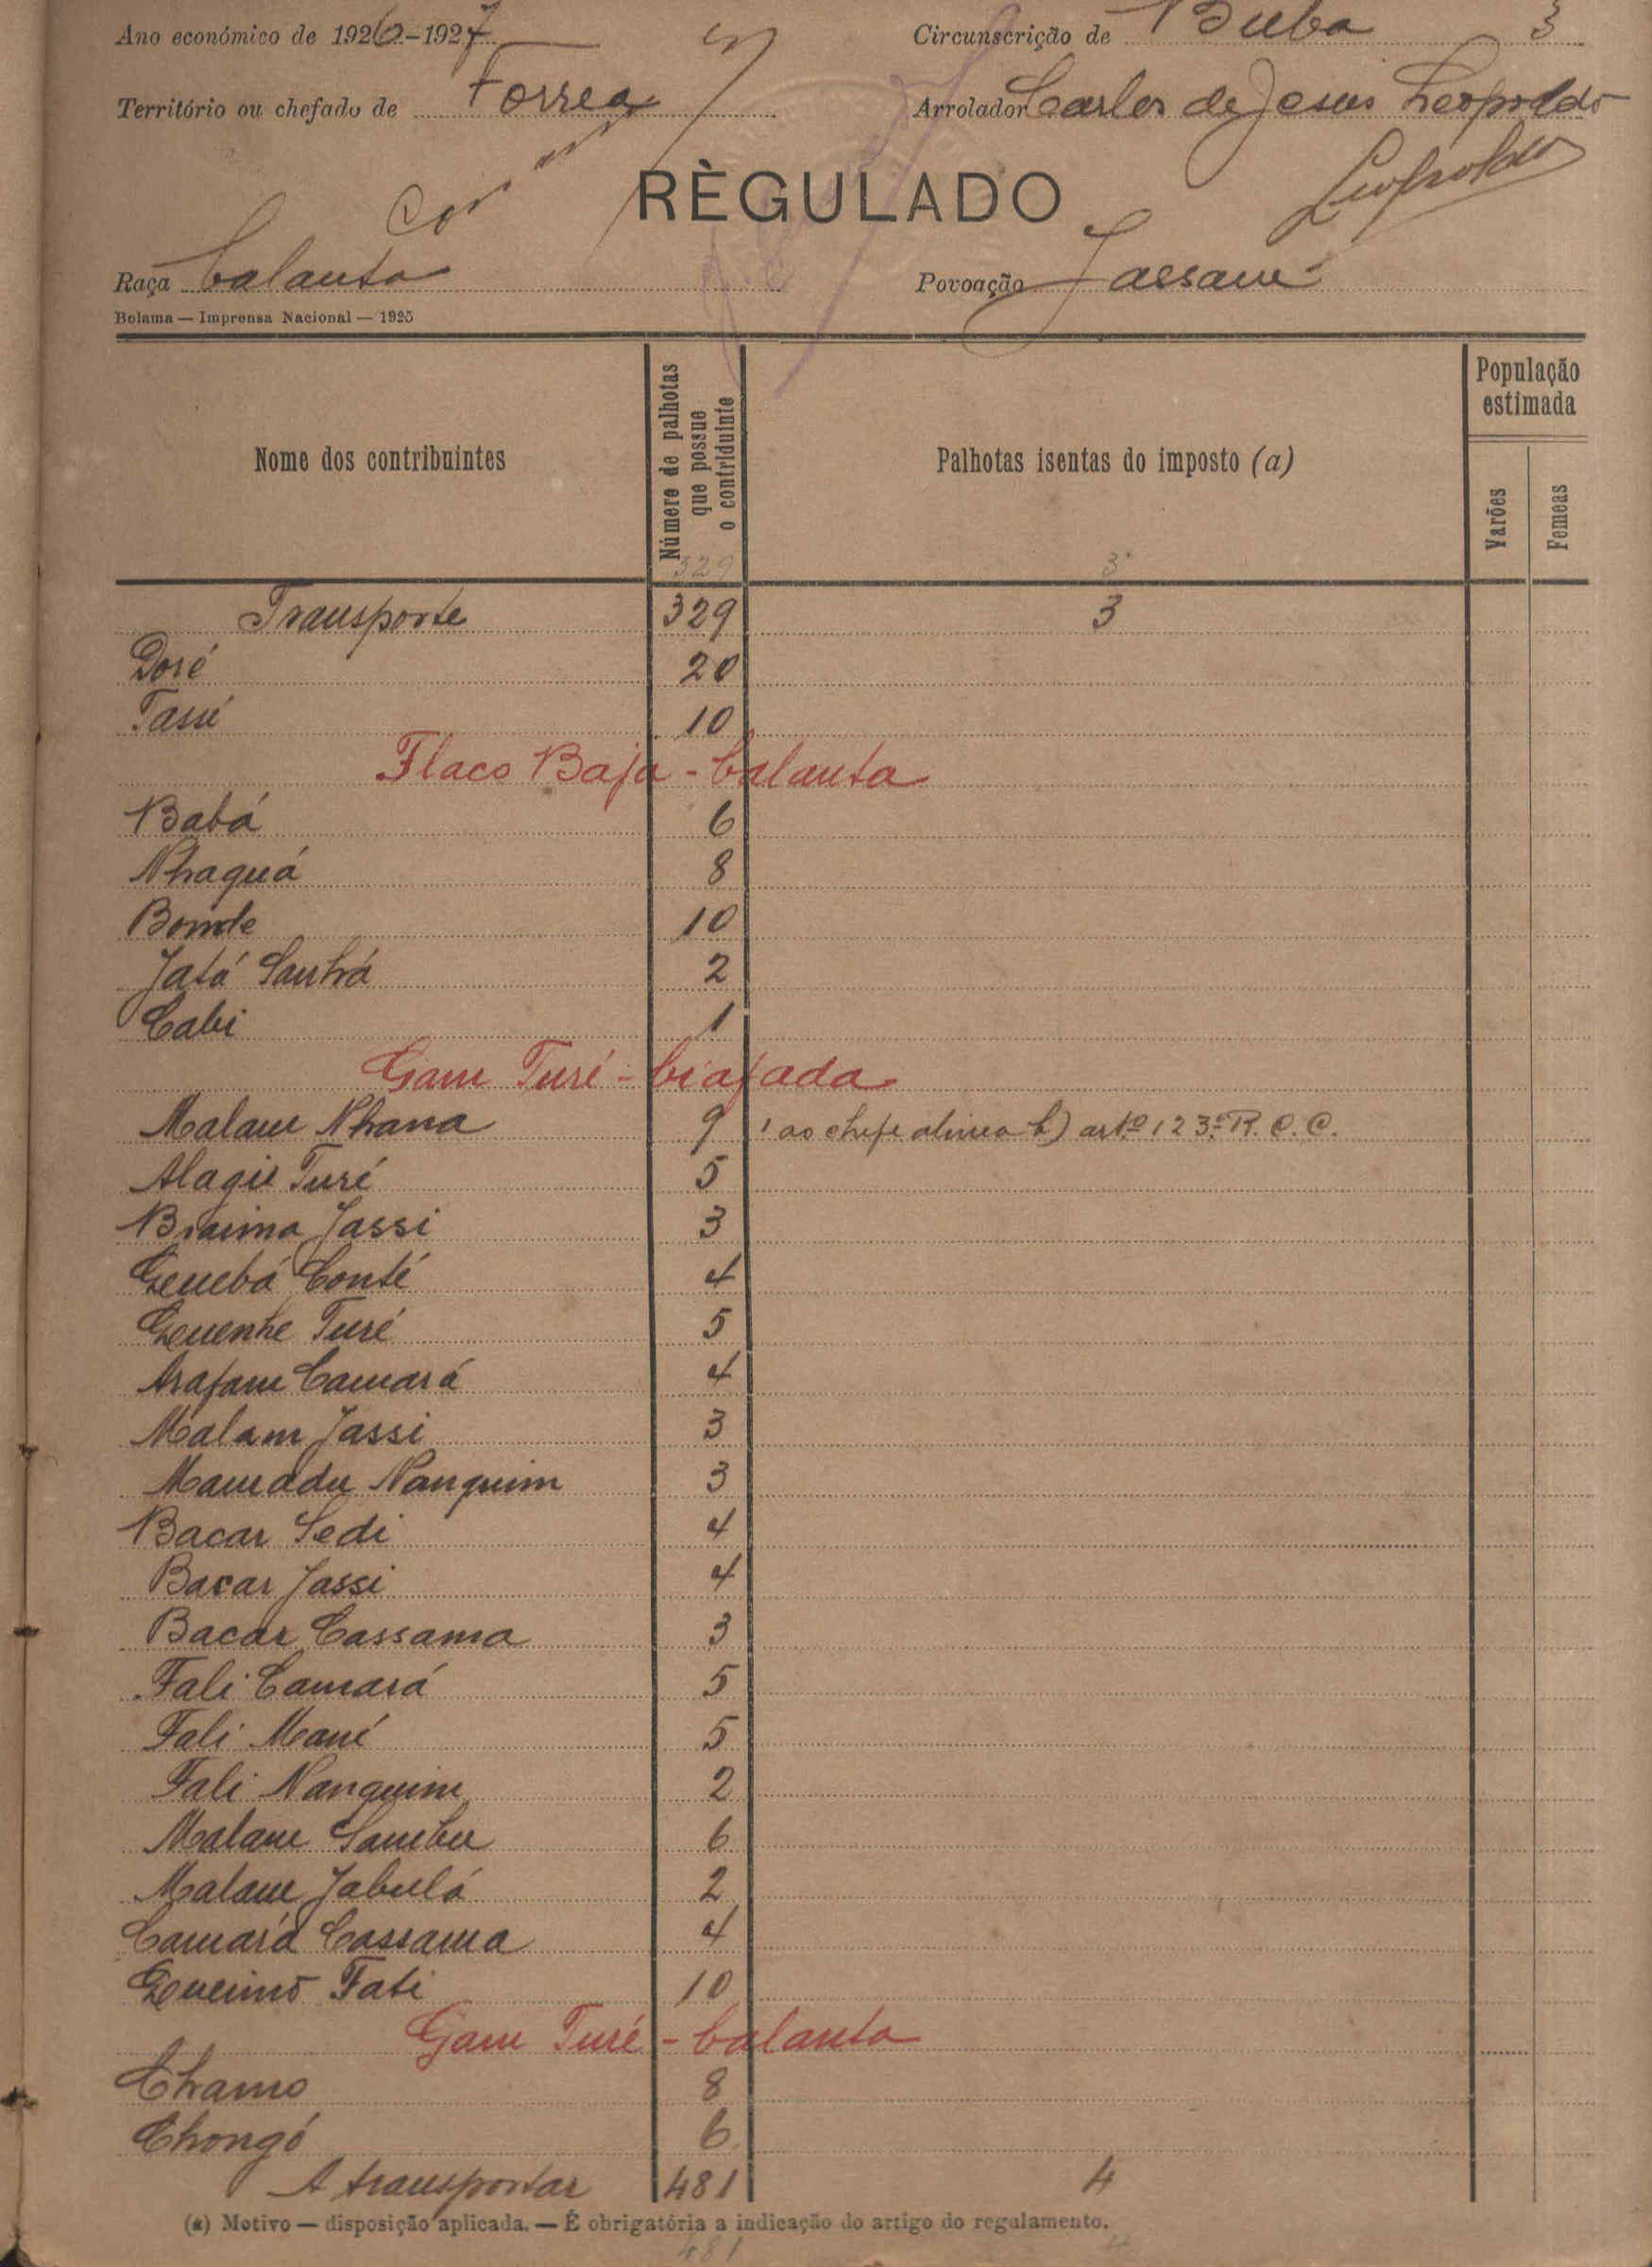 Ano económico de 1926-1927
Circunscrição de Buba 3
Território ou chefado de Forrea
Arrolador Carlos de Jesus Leopoldo
Leopoldo
RÈGULADO
Raça balanta
Povoação
Bolama — Imprensa Nacional — 1925
Nome dos contribuintes
Número de palhotas que possue o contriduinte
Palhotas isentas do imposto (a)
População estimada
Varões
Femeas
329 3
Transporte 329 3
Doré 20
Tassé 10
Flaco Baja - balanta
Babá 6
Nhaguá 8
Bomde 10
Jatá Sanhá 2
Cabi 1
Gam Turé - biafada
Malam Nhana 9 1 ao chefe alinea b) artº 123º R. C. C.
Alagie Turé 5
Braima Jassi 3
Quebá Conté 4
Quenhe Turé 5
Arafam Camará 4
Malam Jassi 3
Mamadu Nanquim 3
Bacar Sedi 4
Bacar Jassi 4
Bacar Cassama 3
Fali Camará 5
Fali Mané 5
Fali Nanquim 2
Malam Sambu 6
Malam Jabulá 2
Camará Cassama 4
Fati 10
Gam Turé - balanta
Chamo 8
Chongó 6
A transportar 481 4
(a) Motivo — disposição aplicada. — É obrigatória a indicação do artigo do regulamento.
481 4